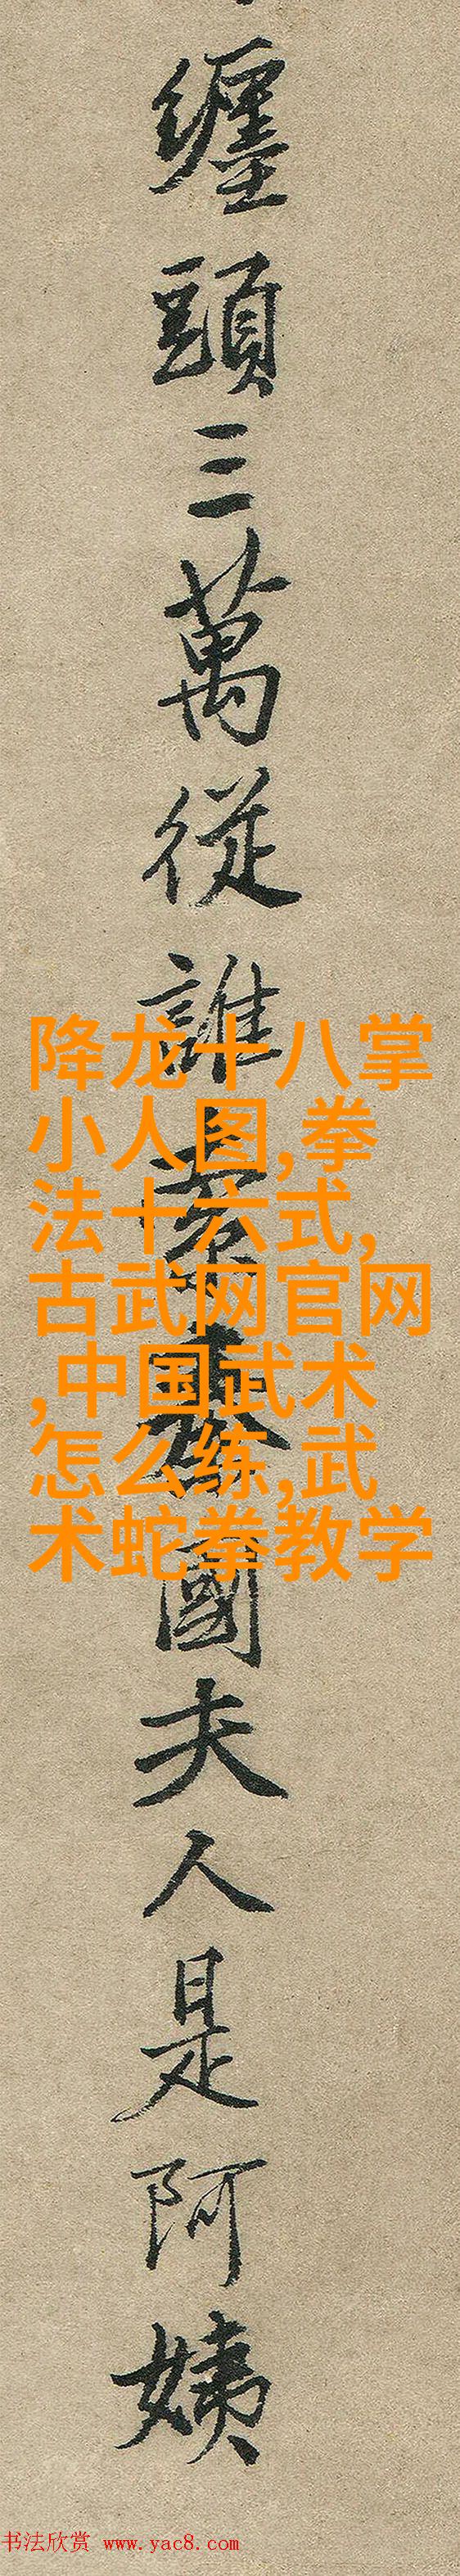 纏頭三萬從誰索秦國夫人是阿姨
降龙十八掌
小人图,拳
法十六式,
古武网官网
,中国武术
怎么练,武
术蛇拳教学
书法欣赏 www.yac8.com